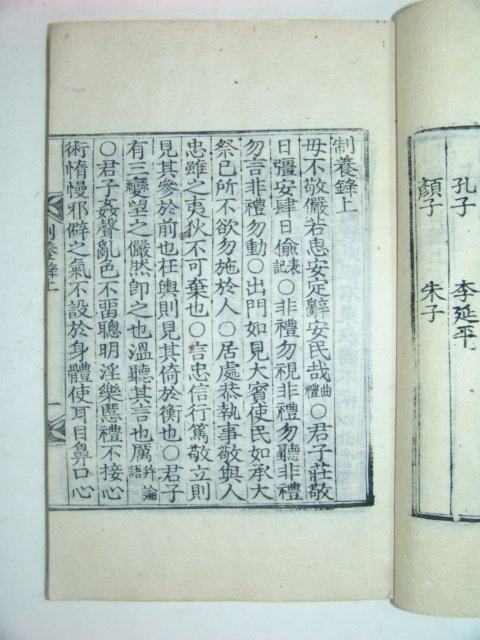 孔子 李延平
顔子 朱子
制養錄上
毋不敬儼若思安定辭安民哉曲禮○君子莊敬
日彊安肆日偷表記○非禮勿視非禮勿聽非禮
勿言非禮勿動○出門如見大賓使民如承大
祭己所不欲勿施於人○居處恭執事敬與人
忠雖之夷狄不可棄也○言忠信行篤敬立則
見其參於前也在輿則見其倚於衡也○君子
有三變望之儼然卽之也溫聽其言也厲幷論語
○君子姦聲亂色不畱聰明淫樂慝禮不接心
術惰慢邪僻之氣不設於身體使耳目鼻口心
制養錄上 一